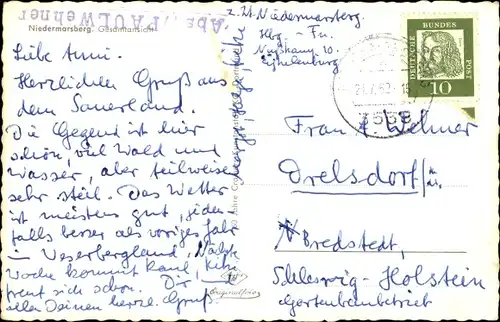 Abs.: PAUL Wehner
Niedermarsberg. Gesamtansicht
z. Zt. Niedermarsberg.
Hbg. - Fu.
10.
Liebe Anni.
Herzlichen Gruß aus
dem Sauerland.
Die Gegend ist hier
schön, viel Wald und
Wasser, aber teilweise
sehr steil. Das Wetter
ist meistens gut, jeden-
falls besser als voriges Jahr
im Weserbergland, Nächste
Woche kommt Paul,
freut sich schon. Dir u.
allen Deinen herzl. Gruß
DEUTSCHE BUNDESPOST
10
Frau A. Wehner
Drelsdorf
Bredstedt,
Schleswig - Holstein
Gartenbaubetrieb
Originalfoto